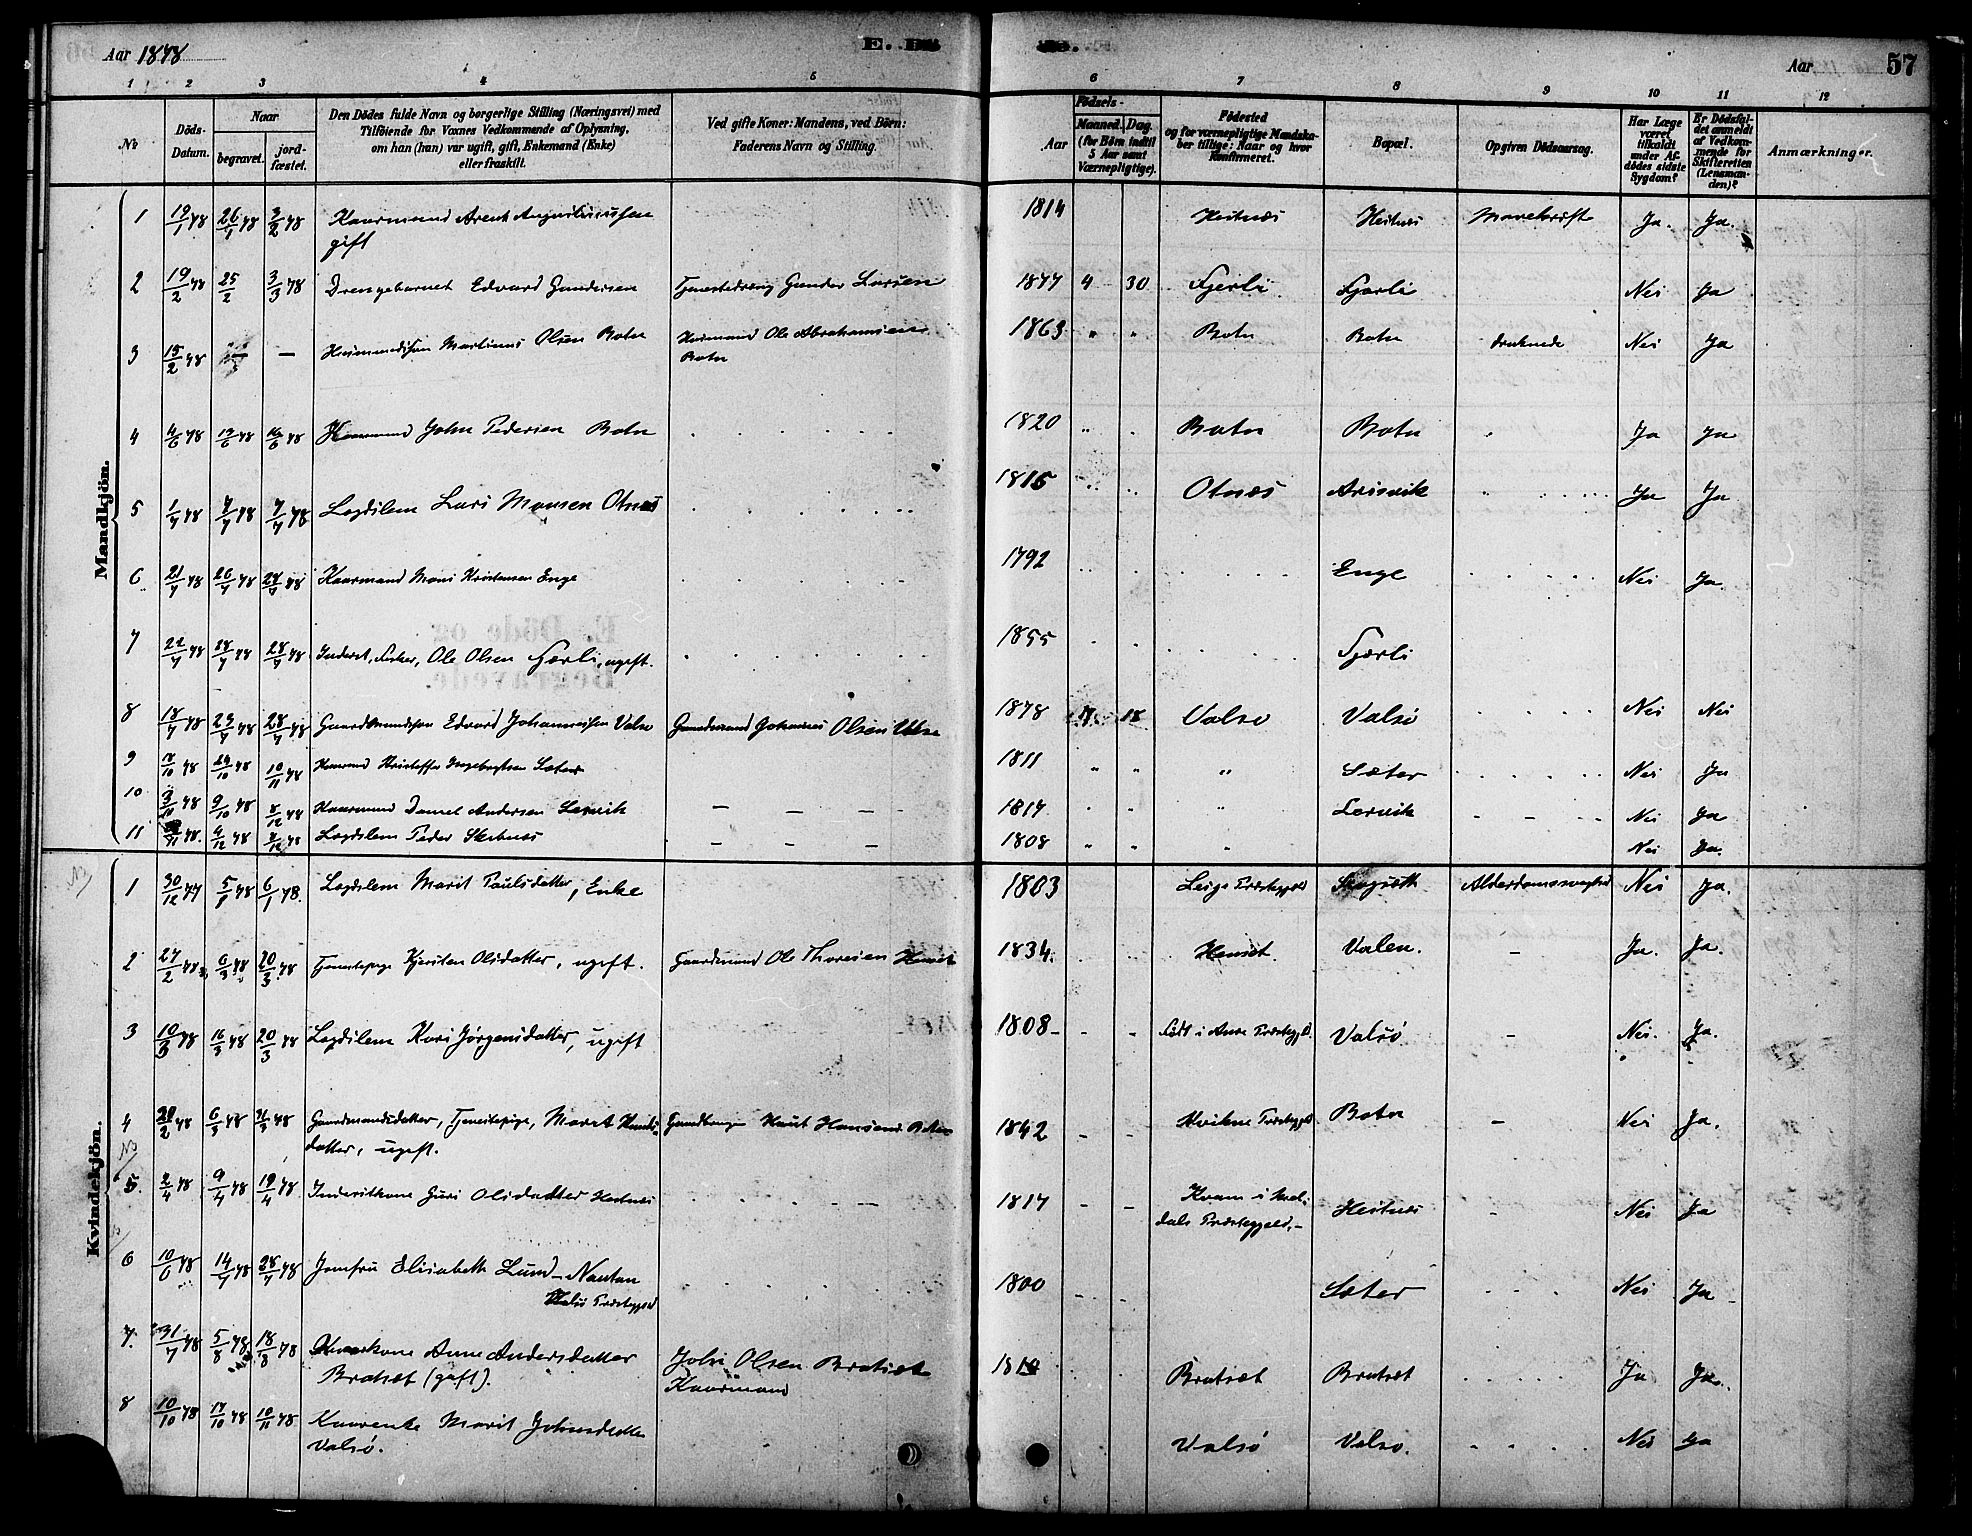 Aar 1878
E. Dö
de.
Aar
57
1 2 3 4 5 6 7 8 9 10 11 12
No
Döds-Datum.
Naar
begravet.
jord-fæstet.
Den Dödes fulde Navn og borgerlige Stilling (Næringsvei) med
Tilföiende for Voxnes Vedkommende af Oplysning,
om han (hun) var ugift, gift, Enkemand (Enke)
eller fraskilt.
Ved gifte Koner: Mandens, ved Börn:
Faderens Navn og Stilling.
Aar
Födsels-
Maaned. Dag.
(for Börn indtil
5 Aar samt
Værnepligtige).
Födested
og for værnepligtige Mandska-
ber tillige: Naar og hvor
konfirmeret.
Bopæl.
Opgiven Dödsaarsag.
Har Læge
været
tilkaldt
under Af-
dödes sidste
Sygdom?
Er Dödsfal-
det anmeldt
af Vedkom-
mende for
Skifteretten
(Lensman-
den)?
Anmærkninger.
Mandkjön.
1 19/1 78 26/1 78 3/2 78 Kaarmand Arent 1814 Hestnes Hestnes Mavekræft Ja. Ja.
gift
2 19/2 78 25/2 3/3 78 Drengebarnet Edvard Gundersen Tjenestedreng Gunder Larsen 1877 4 30 Fjerli Fjerli Nei Ja
3 15/2 78 — Martinus Olsen Botn Huusmand Ole Abrahamsen 1863 " " Botn Botn druknede Nei Ja
Botn
4 4/6 78 13/6 78 16/6 78 Kaarmand John Pedersen Botn 1820 " Botn Botn " Ja Ja
5 1/7 78 7/7 78 7/7 78 Lægdslem Lars Monsen Otnes 1815 Otnæs Arisvik " Ja Ja
6 21/7 78 26/7 78 28/7 78 Kaarmand Mons Kristensen Enge 1792 Enge Nei Ja
7 22/7 78 28/7 78 28/7 78 Inderst, Fisker, Ole Olsen Fjærli, ugift. 1855 Fjærli
8 18/7 78 23/7 78 28/7 78 Gaardmandssøn Edvard Johannessen Valsø Gaardmand Johannes Olsen Valsø 1878 7 18 Valsø Valsø Nei Nei
9 17/10 78 24/10 78 10/11 78 Kaarmand Kristoffer Ingebrigtsen Sæter 1811 " " " Sæter Nei Ja
10 78 9/10 78 8/12 78 Kaarmand Daniel Andersen Lervik — — — 1817 " " " Lervik Nei Ja
11 78. 4/12 78 8/12 78 Lægdslem Peder — — — 1808 " " " Nei Ja.
Kvindekjön.
1 30/12 77 5/1 78 6/1 78. Lægdslem Marit Paulsdatter, Enke 1803 Præstegjeld Alderdomssvaghed Nei Ja.
2 27/2 78 6/3 78 20/3 78 Tjenestepige Kjersten Olsdatter, ugift. Gaardmand Ole Thoresen Henset 1834. Henset. Valen. — Ja. Ja.
3 10/3 78 16/3 78 20/3 78 Lægdslem Kari Jørgensdatter, ugift 1808 - - - Født i Aure Præstegjd. Valsø - Nei. Ja.
4 28/2 78 6/3 78 78 Gaardmandsdatter, Tjenestepige, Marit Knuds- Knut Hansen Botn 1842 - - Kvikne Præstegjeld. Botn — Nei Ja.
datter, ugift.
5. 2/4 78 9/4 78 19/4 78 Inderstkone Guri Olsdatter Hestnes 1817 - - Kvam i Mel- Hestnes - Nei Ja
dals Præstegjeld. -
6 10/6 78 14/7 78 28/7 78 Jomfru Elisabeth Lund - 1800 - - Sæter Nei Ja -
Præstegjeld
7. 31/7 78 5/8 78 18/8 78 Anne Andersdatter John Olsen Bratset 1810 Bratset Bratset Ja Ja.
Bratset (gift). Kaarmand
8 10/10 78 17/10 78 10/11 78 Kaarenke Marit Johnsdatter
Valsø. Valsø Valsø. Nei Ja